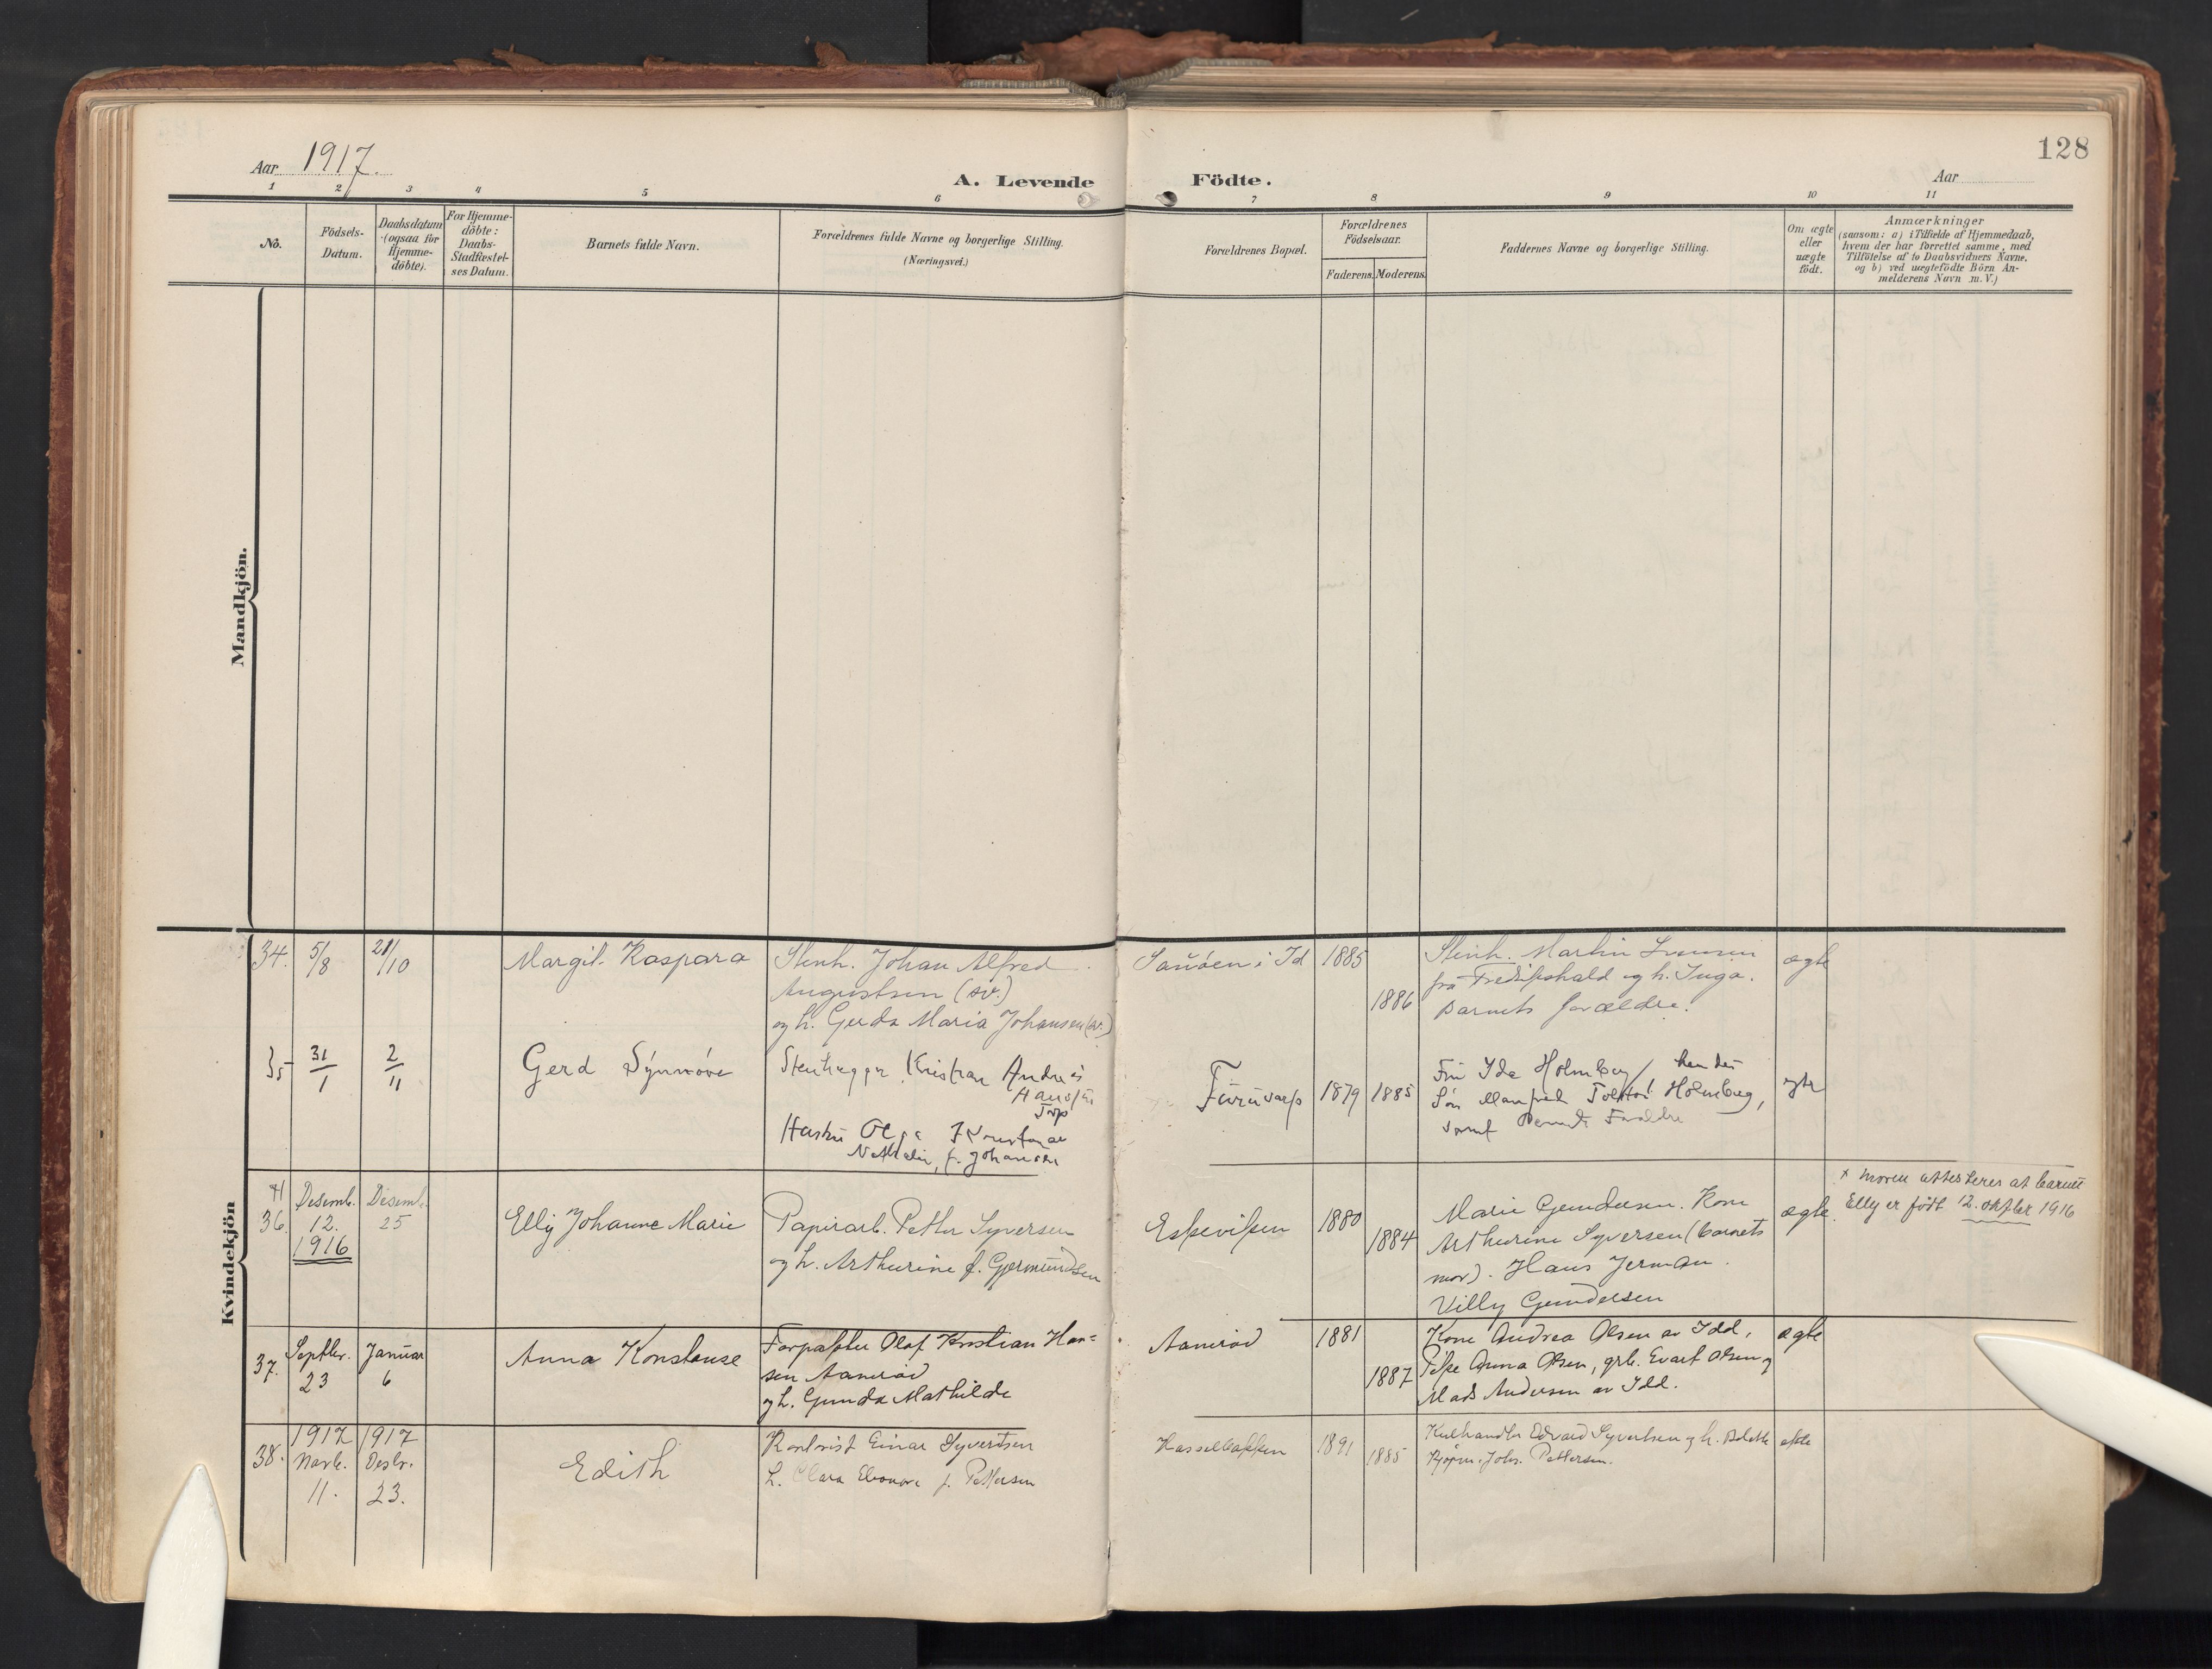 128
Aar 1917.
A. Levende Födte.
Aar
1 2 3 4 5 6 7 8 9 10 11
No.
Födsels-
Datum.
Daabsdatum
(ogsaa for
Hjemme-
döbte).
For Hjemme-
döbte:
Daabs-
Stadfæstel-
ses Datum.
Barnets fulde Navn.
Forældrenes fulde Navne og borgerlige Stilling.
(Næringsvei.)
Forældrenes Bopæl.
Forældrenes
Födselsaar.
Faderens. Moderens.
Faddernes Navne og borgerlige Stilling.
Om ægte
eller
uægte
födt.
Anmærkninger
(saasom: a) i Tilfælde af Hjemmedaab,
hvem der har forrettet samme, med
Tilföielse af to Daabsvidners Navne,
og b) ved uægtefödte Börn An-
melderens Navn m. V.)
Mandkjön.
Kvindekjön
34. 5/8 21/10 Margit Kaspara
Stenh. Johan Alfred
Augustsen (sv.)
og h. Gerda Maria Johansen (sv.)
i Id 1885 1886
Stenh. Martin
fra Fredrikshald og h. Inga.
Barnets forældre.
ægte
35 31/1 2/11 Gerd Synnöve
Stenhugger Kristian Andreas
Hansen
Torp
Hustru Olga
f. Johansen
Furuvarp 1879 1885
Fru Ida Holmberg, hendes
Sön Manfred Holmberg,
samt Barnets Forældre
ægte
36. Desemb. 12. 1916
Desemb. 25
Elly Johanne Marie
Papirarb. Petter Syversen
og h. Arthurine f. Gjermundsen
Eskeviken 1880 1884
Marie Gundersen. Kone
Arthurine Syversen (barnets
mor). Hans Jerman.
Villy Gundersen
ægte
x moren attesteres at barnet
Elly er födt 12. oktber 1916
37. Septbr. 23
Januar 6
Anna Konstanse
Forpakter Olaf Kristian Han=
sen Aamröd
og h. Gunda Mathilde
Aamröd 1881 1887
Kone Andrea Olsen av Idd,
Pike Anna Olsen, grb. Evart Olsen og
Mads Andersen av Idd.
ægte
38. 1917 Novb. 11.
1917 Desbr. 23.
Edith
Kontorist Einar Syvertsen
h. Clara Eleonore f. Pettersen
Hasselbakken 1891 1885
Kulhandler Edvard Syvertsen og h. Bolette
Kjöpm. Johs. Pettersen.
ekte